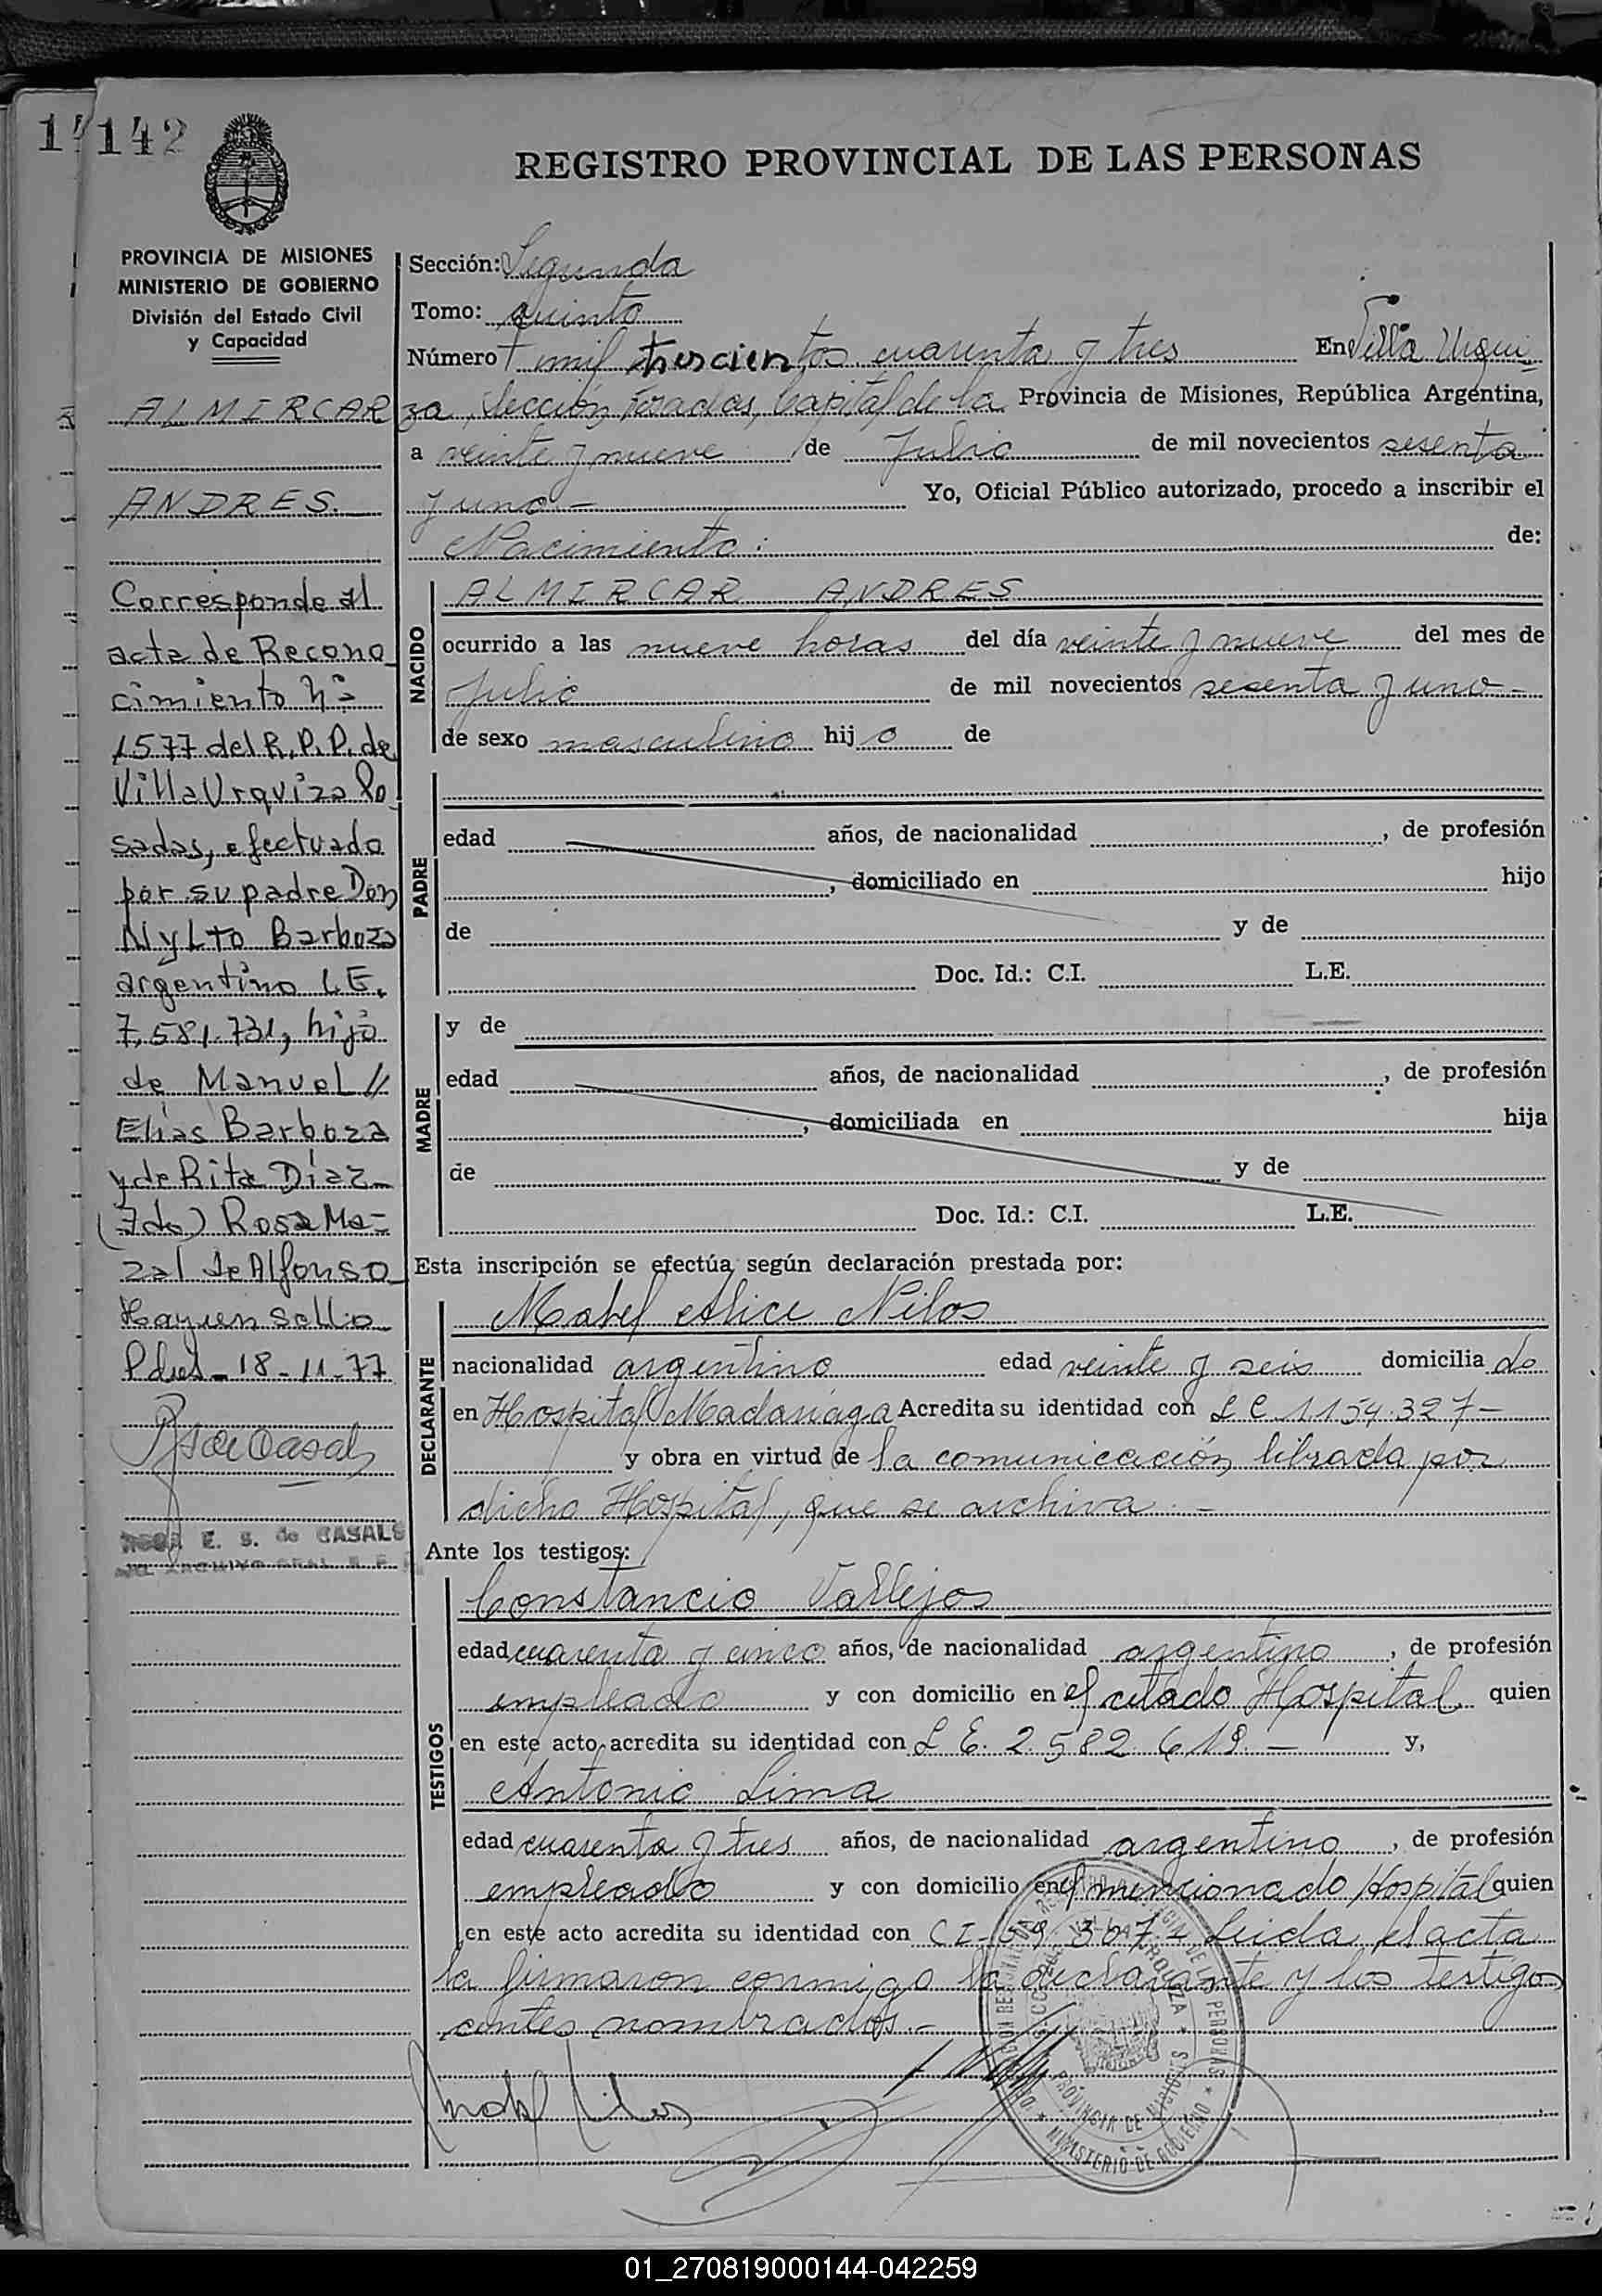 142
REGISTRO PROVINCIAL DE LAS PERSONAS
PROVINCIA DE MISIONES
MINISTERIO DE GOBIERNO
División del Estado Civil
y Capacidad
ALMIRCAR
ANDRES.
Corresponde al
acta de Recono
cimiento Nº
1577 del R.P.P. de
Villa Urquiza Po
sadas, efectuado
por su padre Don
Nylto Barboza
argentino L.E.
7.581.731, hijo
de Manuel //
Elías Barboza
y de Rita Díaz
(Fdo) Rosa Ma-
zal de Alfonso
Hay un sello
Pdas - 18-11-77
E. S. de CASALS
Sección: Segunda
Tomo: quinto
Número mil trescientos cuarenta y tres En Villa Urqui
za, Sección Posadas, Capital de la Provincia de Misiones, República Argentina,
a veinte y nueve de Julio de mil novecientos sesenta
y uno.- Yo, Oficial Público autorizado, procedo a inscribir el
Nacimiento: de:
NACIDO
ALMIRCAR ANDRES
ocurrido a las nueve horas del día veinte y nueve del mes de
Julio de mil novecientos sesenta y uno -
de sexo masculino hijo de
PADRE
edad años, de nacionalidad , de profesión
, domiciliado en hijo
de y de
Doc. Id.: C.I. L.E.
MADRE
y de
edad años, de nacionalidad , de profesión
, domiciliada en hija
de y de
Doc. Id.: C.I. L.E.
Esta inscripción se efectúa según declaración prestada por:
DECLARANTE
Mabel Alice Nilos
nacionalidad argentino edad veinte y seis domicilia do
en Hospital Madariaga Acredita su identidad con L C 1.154.327-
y obra en virtud de la comunicación librada por
dicho Hospital, que se archiva.-
Ante los testigos:
TESTIGOS
Constancio Vallejos
edad cuarenta y cinco años, de nacionalidad argentino, de profesión
empleado y con domicilio en el citado Hospital quien
en este acto acredita su identidad con L E. 2.582.619.- y,
Antonio Lima
edad cuarenta y tres años, de nacionalidad argentino, de profesión
empleado y con domicilio en el mencionado Hospital quien
en este acto acredita su identidad con CI-59.307- Leida el acta
la firmaron conmigo la declarante y los testigos
antes nombrados.-
Mabel Nilos
PROVINCIA DE MISIONES
MINISTERIO DE GOBIERNO
01_270819000144-042259